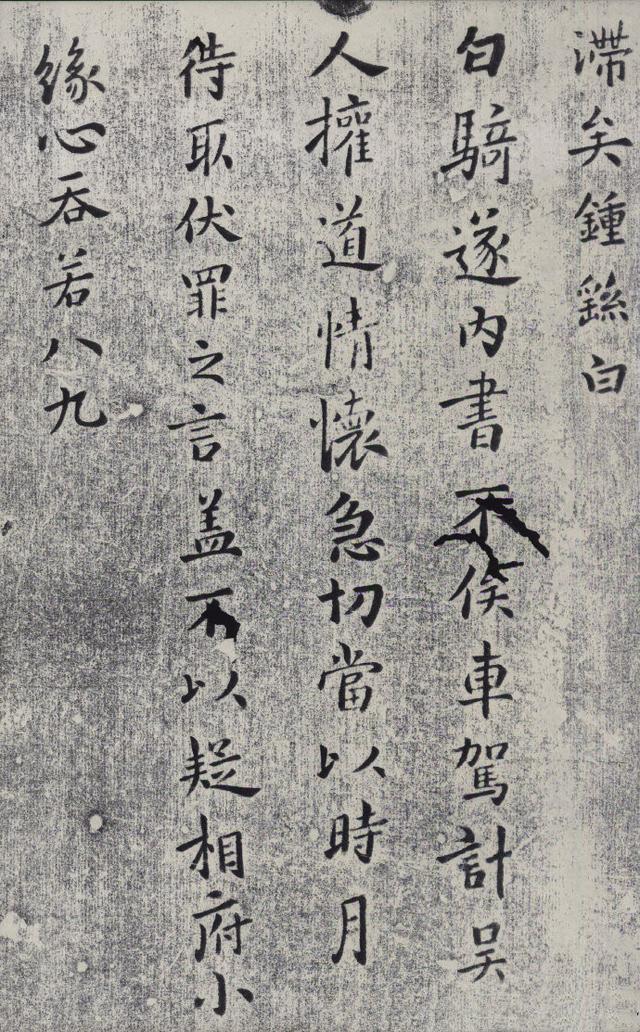 滯矣鍾繇白
白騎遂内書不俟車駕計吴
人權道情懷急切當以時月
待取伏罪之言盖不以疑相府小
緣心吞若八九